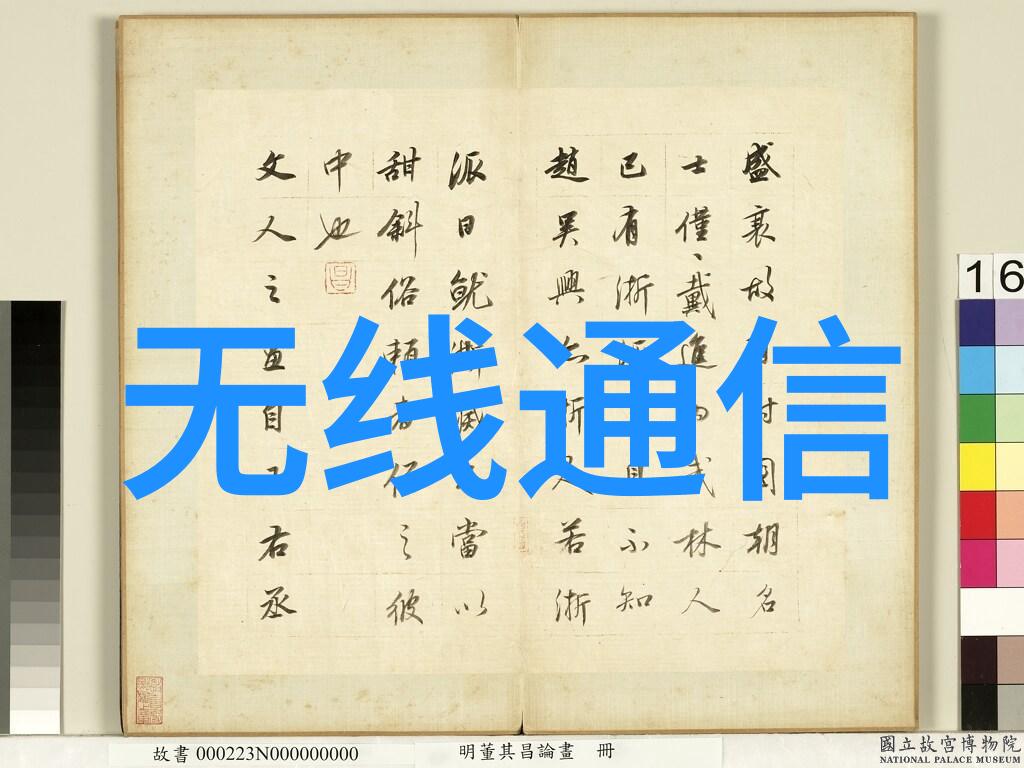 盛衰故時國朝名
士僅、戴進為武林人
已有浙目不知
趙吳興亦浙人若浙
派日就澌滅不當以
甜斜俗賴者係之彼
中也
文人之畫自王右丞
无线通信
16
故書 000223N000000000
明董其昌論畫 冊
國立故宮博物院
NATIONAL PALACE MUSEUM